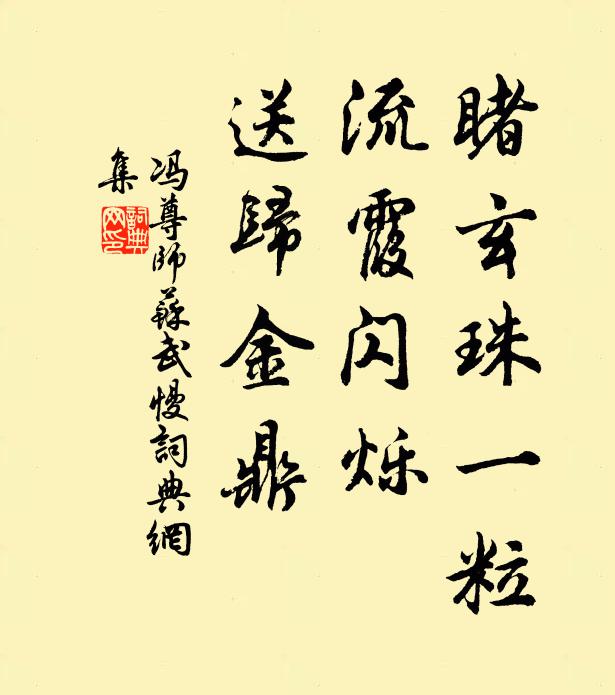 睹玄珠一粒
流霞闪烁
送歸金鼎
冯尊师蘇武慢詞典網
集
詞典网印